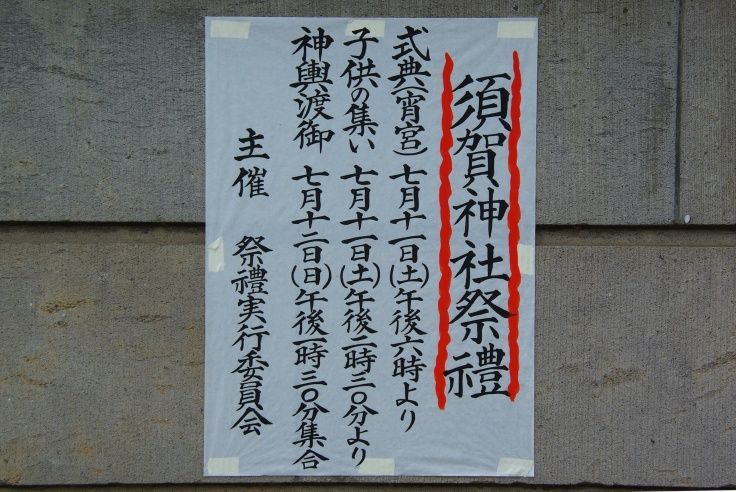 須賀神社祭禮
式典(宵宮) 七月十一日(土)午後六時より
子供の集い 七月十一日(土)午後二時三〇分より
神輿渡御 七月十二日(日)午後一時三〇分集合
主催 祭禮実行委員会